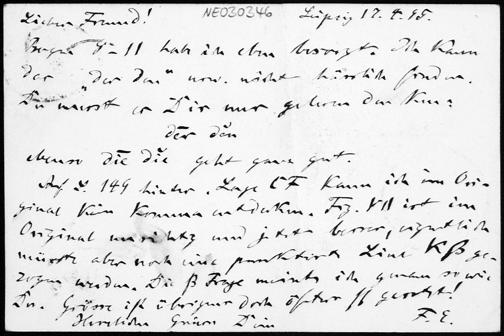 Lieber Freund! NE030346 Leipzig 17.4.95.
Bogen 9–11 hab ich eben besorgt. Ich kann
das „der den“ usw. nicht hässlich finden.
Du musst es Dir nur gelesen den
der den
ebenso die die geht ganz gut.
Auf S. 149 hinter Lage CF kann ich im Ori-
ginal kein Komma entdecken. Fig. VII ist im
Original unrichtig und jetzt besser, eigentlich
müsste aber noch eine punktirte Linie Kß ge-
zogen werden. Die ß Frage meinte ich genau so wie
Du. Grösse ist übrigens doch öfter ss gesetzt!
Herzlichen Gruss Dein F. E.